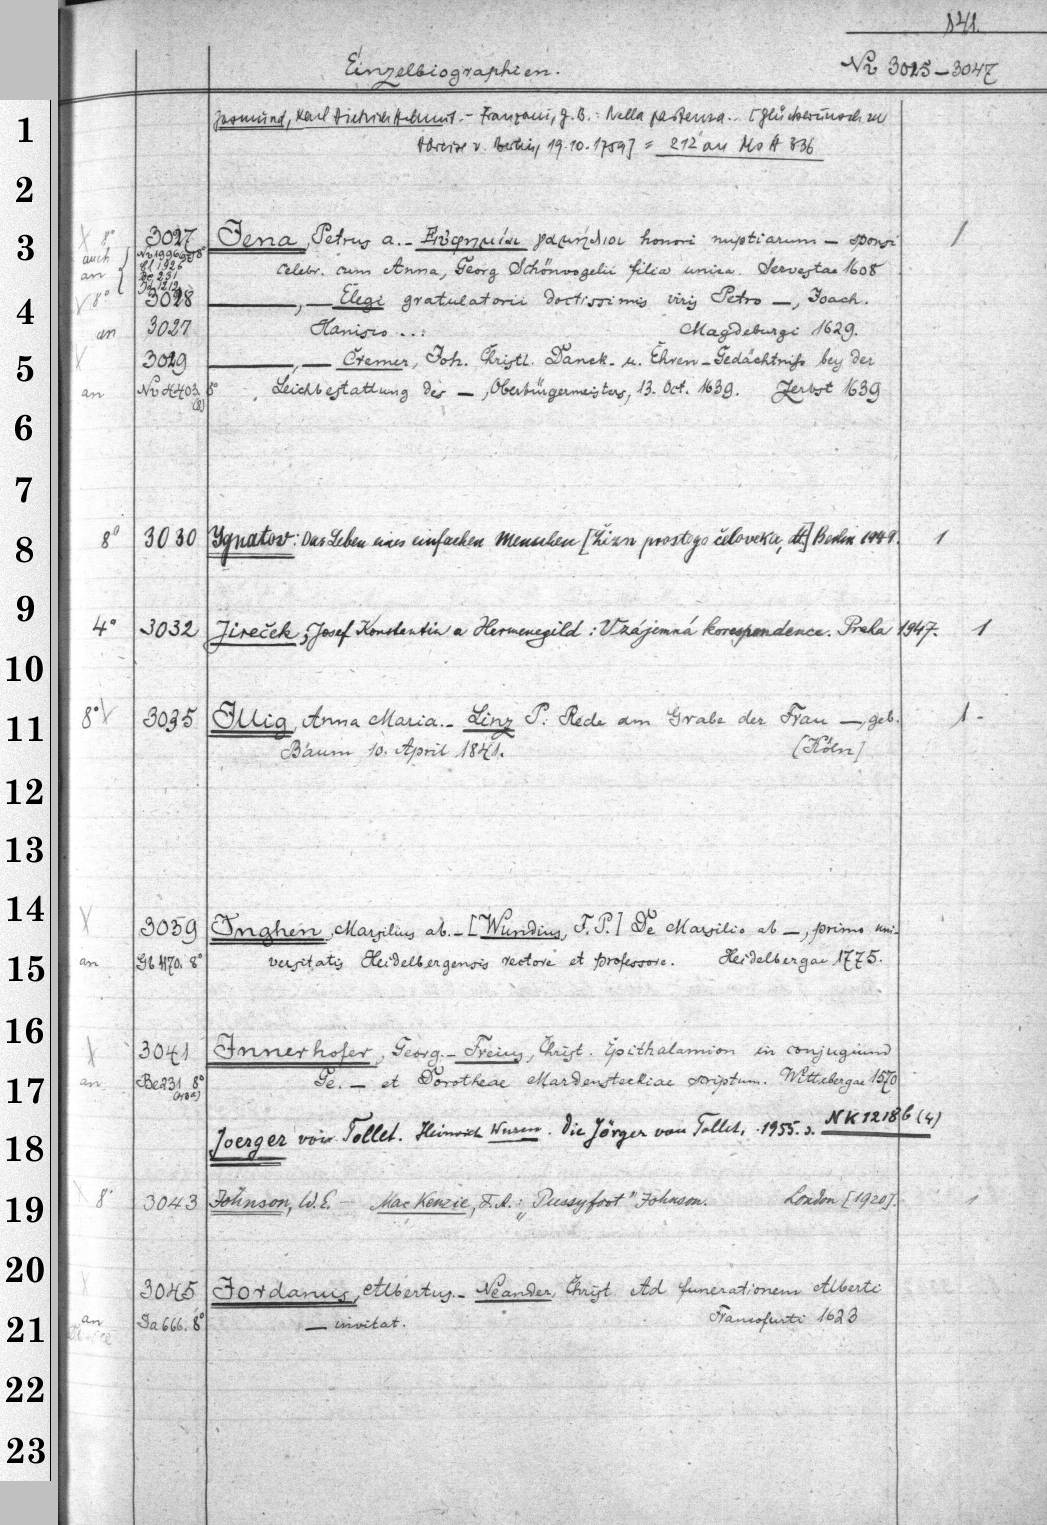 141.
Einzelbiographien.
No 3025–3047
1
Jasmund, Karl Dietrich Helmut. – Franzani, J. B.: Nella partenza.. [Glückwunsch zu
Abreise v. Berlin, 19.10.1759] = 212 an Ms A 836
2
3
8° 3027 Jena, Petrus a. – Επιφημίαι γαμήλιοι honori nuptiarum – sponsi 1
auch
an
celebr. cum Anna, Georg Schönvogelii filia unica. Servestae 1608
4
8° 3028 ———, — Elegi gratulatorii doctissimis viris Petro —, Joach.
an 3027 Hanisio ..: Magdeburgi 1629.
5
3029 ———, — Cremer, Joh. Christl. Danck- u. Ehren-Gedächtniß bey der
an Leichbestattung des —, Oberbürgermeisters, 13. Oct. 1639. Zerbst 1639
6
7
8
8° 3030 Ygnatov: Das Leben eines einfachen Menschen [Žizn prostogo čeloveka, dt.] Berlin 1949. 1
9
4° 3032 Jireček, Josef Konstantin a Hermenegild: Vzájemná korespondence. Praha 1947. 1
10
11
8° 3035 Illig, Anna Maria. – Linz P: Rede am Grabe der Frau —, geb. 1 -
Baum 10. April 1841. [Köln]
12
13
14
3039 Inghen, Marsilius ab. – [Wundius, F. P.] De Marsilio ab —, primo uni-
15
an Gb 4170. 8° versitatis Heidelbergensis rectore et professore. Heidelbergae 1775.
16
3041 Innerhofer, Georg. – Freius, Christ. Epithalamion in conjugium
17
an Be 231 8° Ge. — et Dorotheae Mardensteckiae scriptum. Wittebergae 1570
18
Joerger von Tollet. Heinrich Wurm. Die Jörger von Tollet. 1955. s. NK 1218 b (4)
19
8° 3043 Johnson, W. E. – Mac Kenzie, F. A.: „Pussyfoot" Johnson. London [1920]. 1
20
3045 Jordanus, Albertus. – Neander, Christ. Ad funerationem Alberti
21
an Da 666. 8° — invitat. Francofurti 1623
22
23